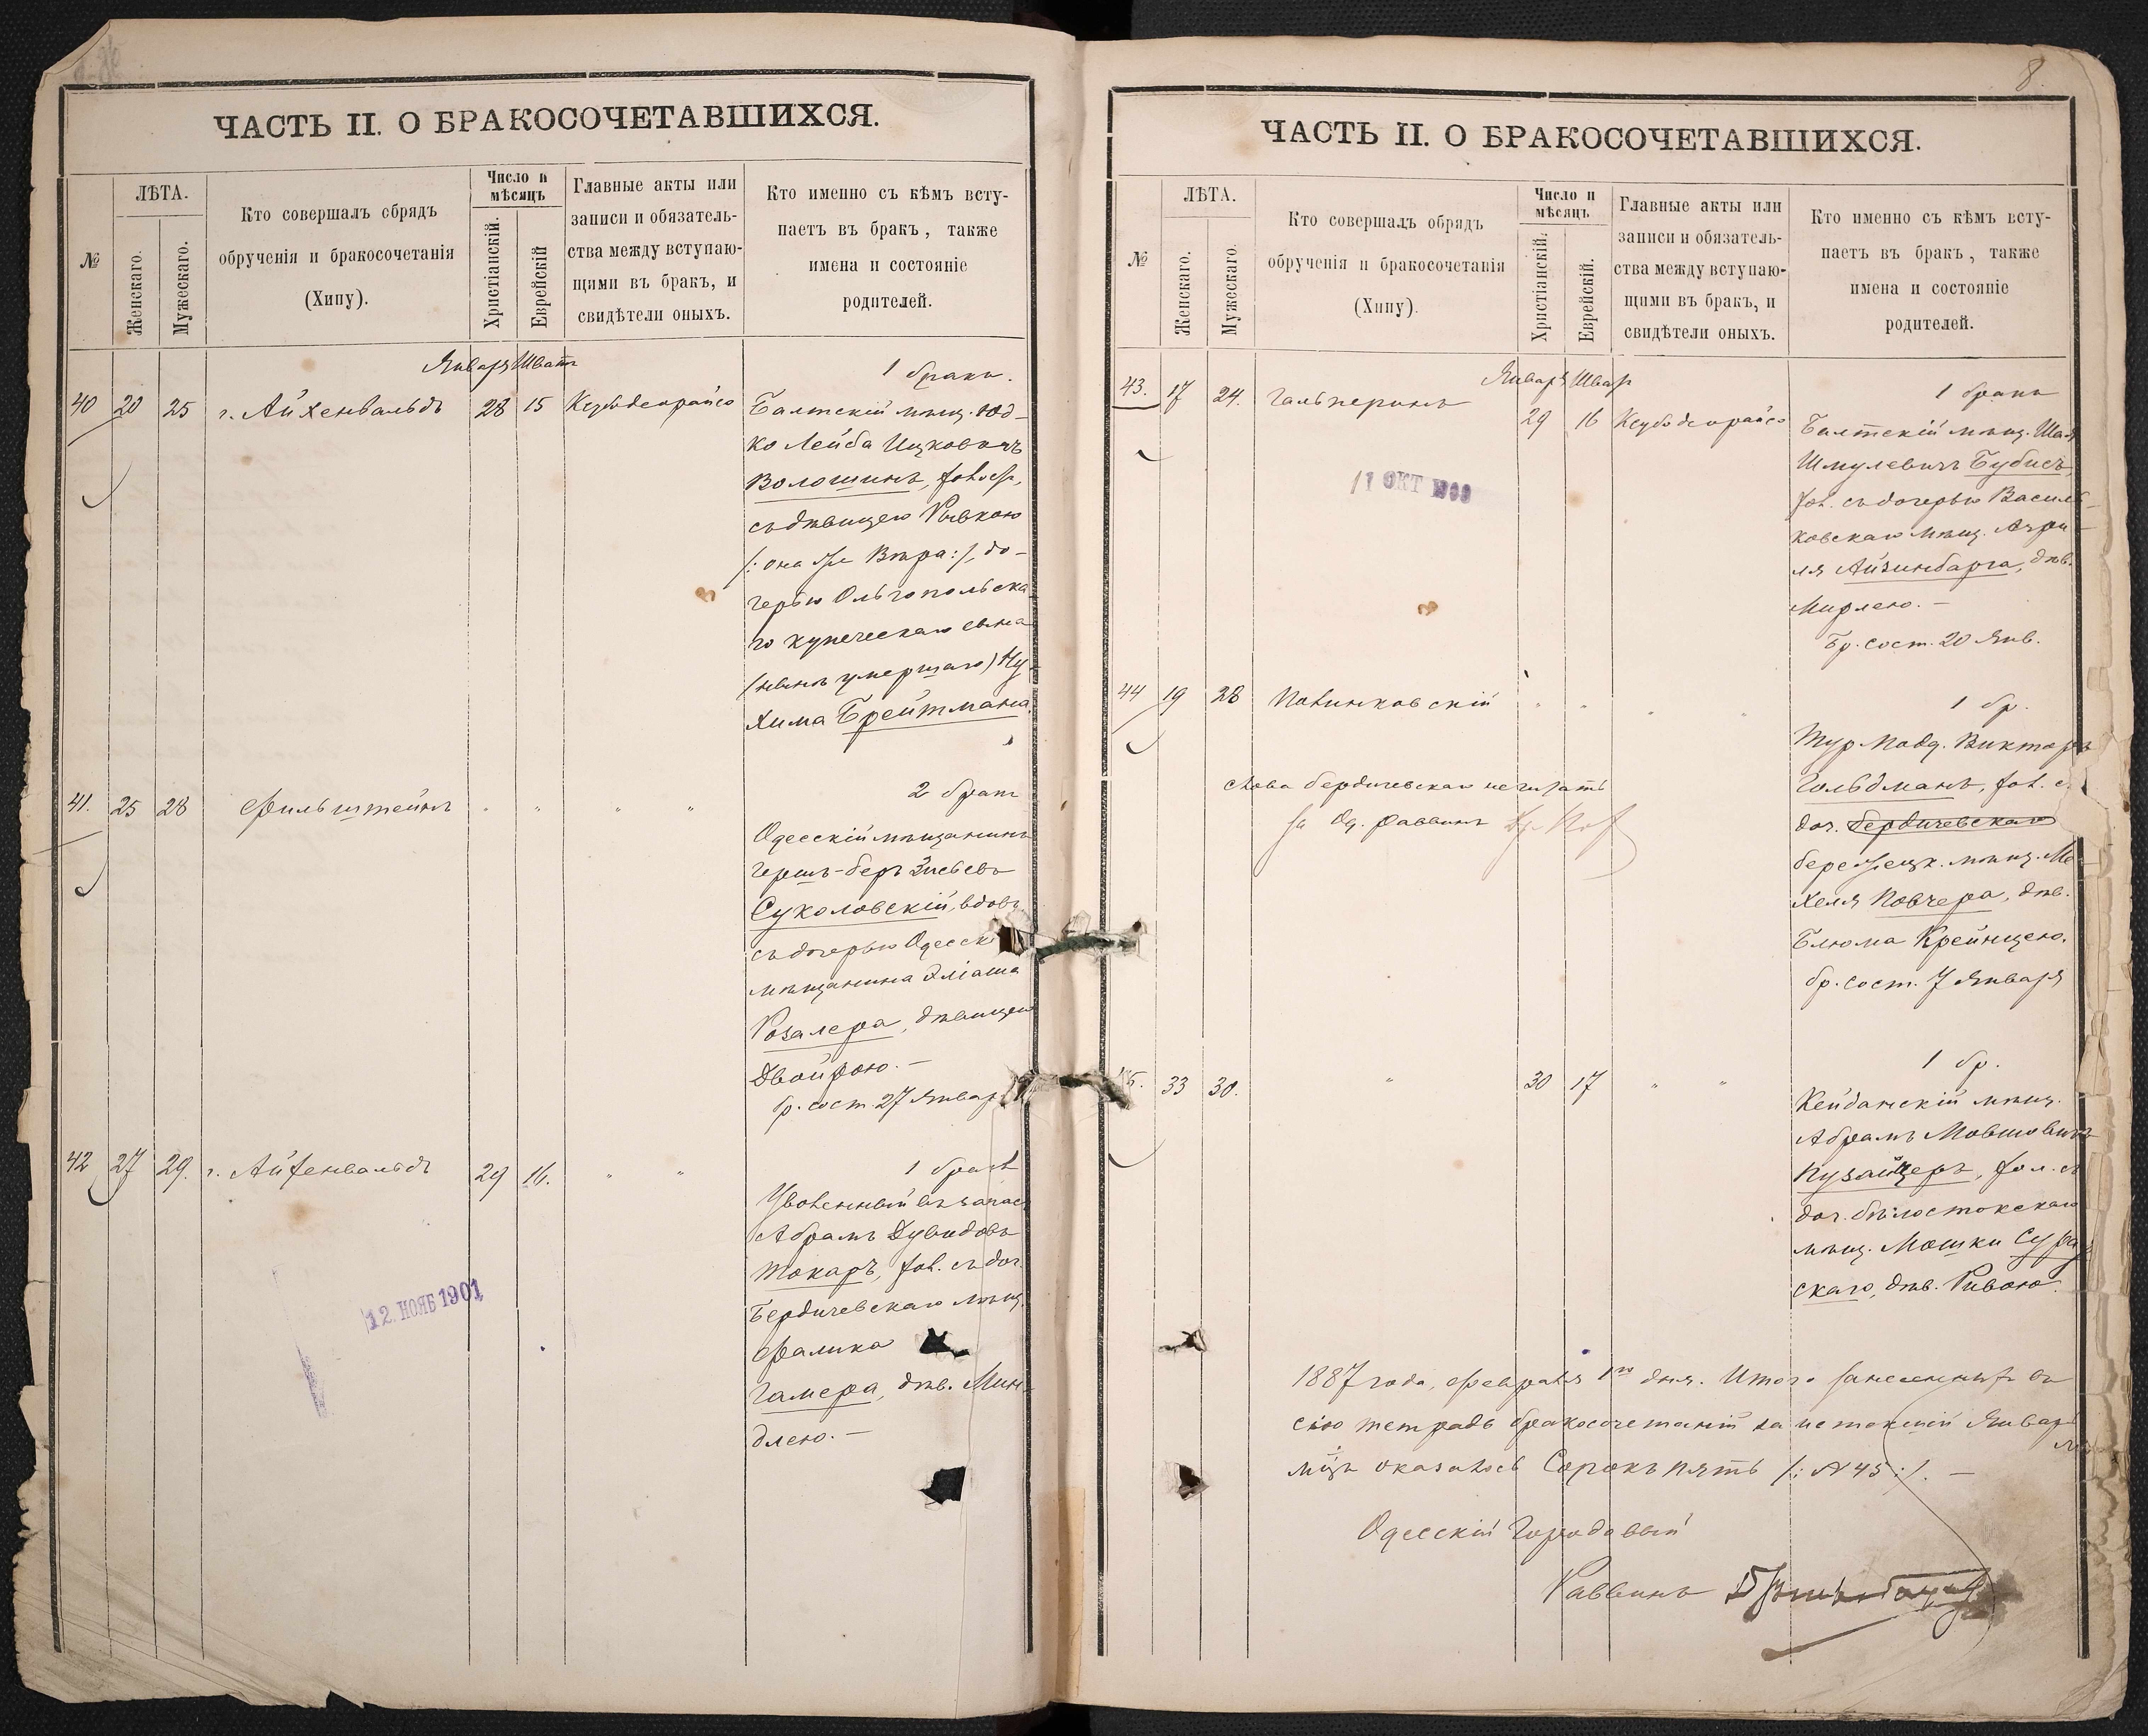 ЧАСТЬ II. О БРАКОСОЧЕТАВШИХСЯ.
№
ЛѢТА.
Женскаго.
Мужескаго.
Кто совершалъ обрядъ
обрученія и бракосочетанія
(Хипу).
Число и
мѣсяцъ
Христіанскій.
Еврейскій
Главные акты или
записи и обязатель-
ства между вступаю-
щими въ бракъ, и
свидѣтели оныхъ.
Кто именно съ кѣмъ всту-
паетъ въ бракъ, также
имена и состояніе
родителей.
Январь Шватъ
40 20 25 г. Айхенвальдъ 28 15
1 бракъ.
Балтскій мѣщ. Юд-
ко Лейба Ицковичъ
Волошинъ, хол.
съ дѣвицею Ривкою
/: она же Вѣра :/, до-
черью Ольгопольска
го купеческаго сына
(нынѣ умершаго) Ну
хима Брейтмана.
41. 25 28 Фильштейнъ " " " "
2 бракъ
Одесскій мѣщанинъ
Гершъ-беръ
Суколовскій, вдов.
съ дочерью Одесск
мѣщанина Эліаша
Розалера, дѣвицею
Двойрою. —
бр. сост. 27 Январ
42 27 29. г. Айхенвальдъ 29 16. " "
1 бракъ
Уволенный въ запас
Абрамъ Дувидовъ
Токарь, хол. съ доч.
Бердичевскаго мѣщ.
Фалика
Гамера, дѣв. Мин-
длею. —
12. НОЯБ 1901
8.
ЧАСТЬ II. О БРАКОСОЧЕТАВШИХСЯ.
№
ЛѢТА.
Женскаго.
Мужескаго.
Кто совершалъ обрядъ
обрученія и бракосочетанія
(Хипу).
Число и
мѣсяцъ
Христіанскій.
Еврейскій.
Главные акты или
записи и обязатель-
ства между вступаю-
щими въ бракъ, и
свидѣтели оныхъ.
Кто именно съ кѣмъ всту-
паетъ въ бракъ, также
имена и состояніе
родителей.
Январь Шват
43. 17 24. Гальперинъ 29 16
1 бракъ
Балтскій мѣщ.
Шмулевичъ Бубисъ,
хол. съ дочерью Василь-
ковскаго мѣщ.
ля Айзинбарга, дѣв.
Мирлею. —
Бр. сост. 20 Янв.
11 ОКТ
44 19 28 Повинковскій " " " "
1 бр.
Тур. Подд. Викторъ
Гольдманъ, хол. с
доч. Бердичевскаго
мѣщ. Ме-
хеля Повчера, дѣв.
Блюма Крейнцею.
бр. сост. 7 Января
слова бердичевскаго не читать
за Од. раввинъ
45. 33 30. " 30 17 " "
1 бр.
Кейданскій мѣщ.
Абрамъ Мовшовичъ
хол. съ
доч. бѣлостокскаго
мѣщ. Мошки Сураж
скаго, дѣв. Ривою.
1887 года, февраля 1го дня. Итого занесенныхъ въ
сію тетрадь бракосочетаній за истекшій Январь
мцъ оказалось Сорокъ пять /: № 45 :/. —
Одесскій Городовый
Раввинъ